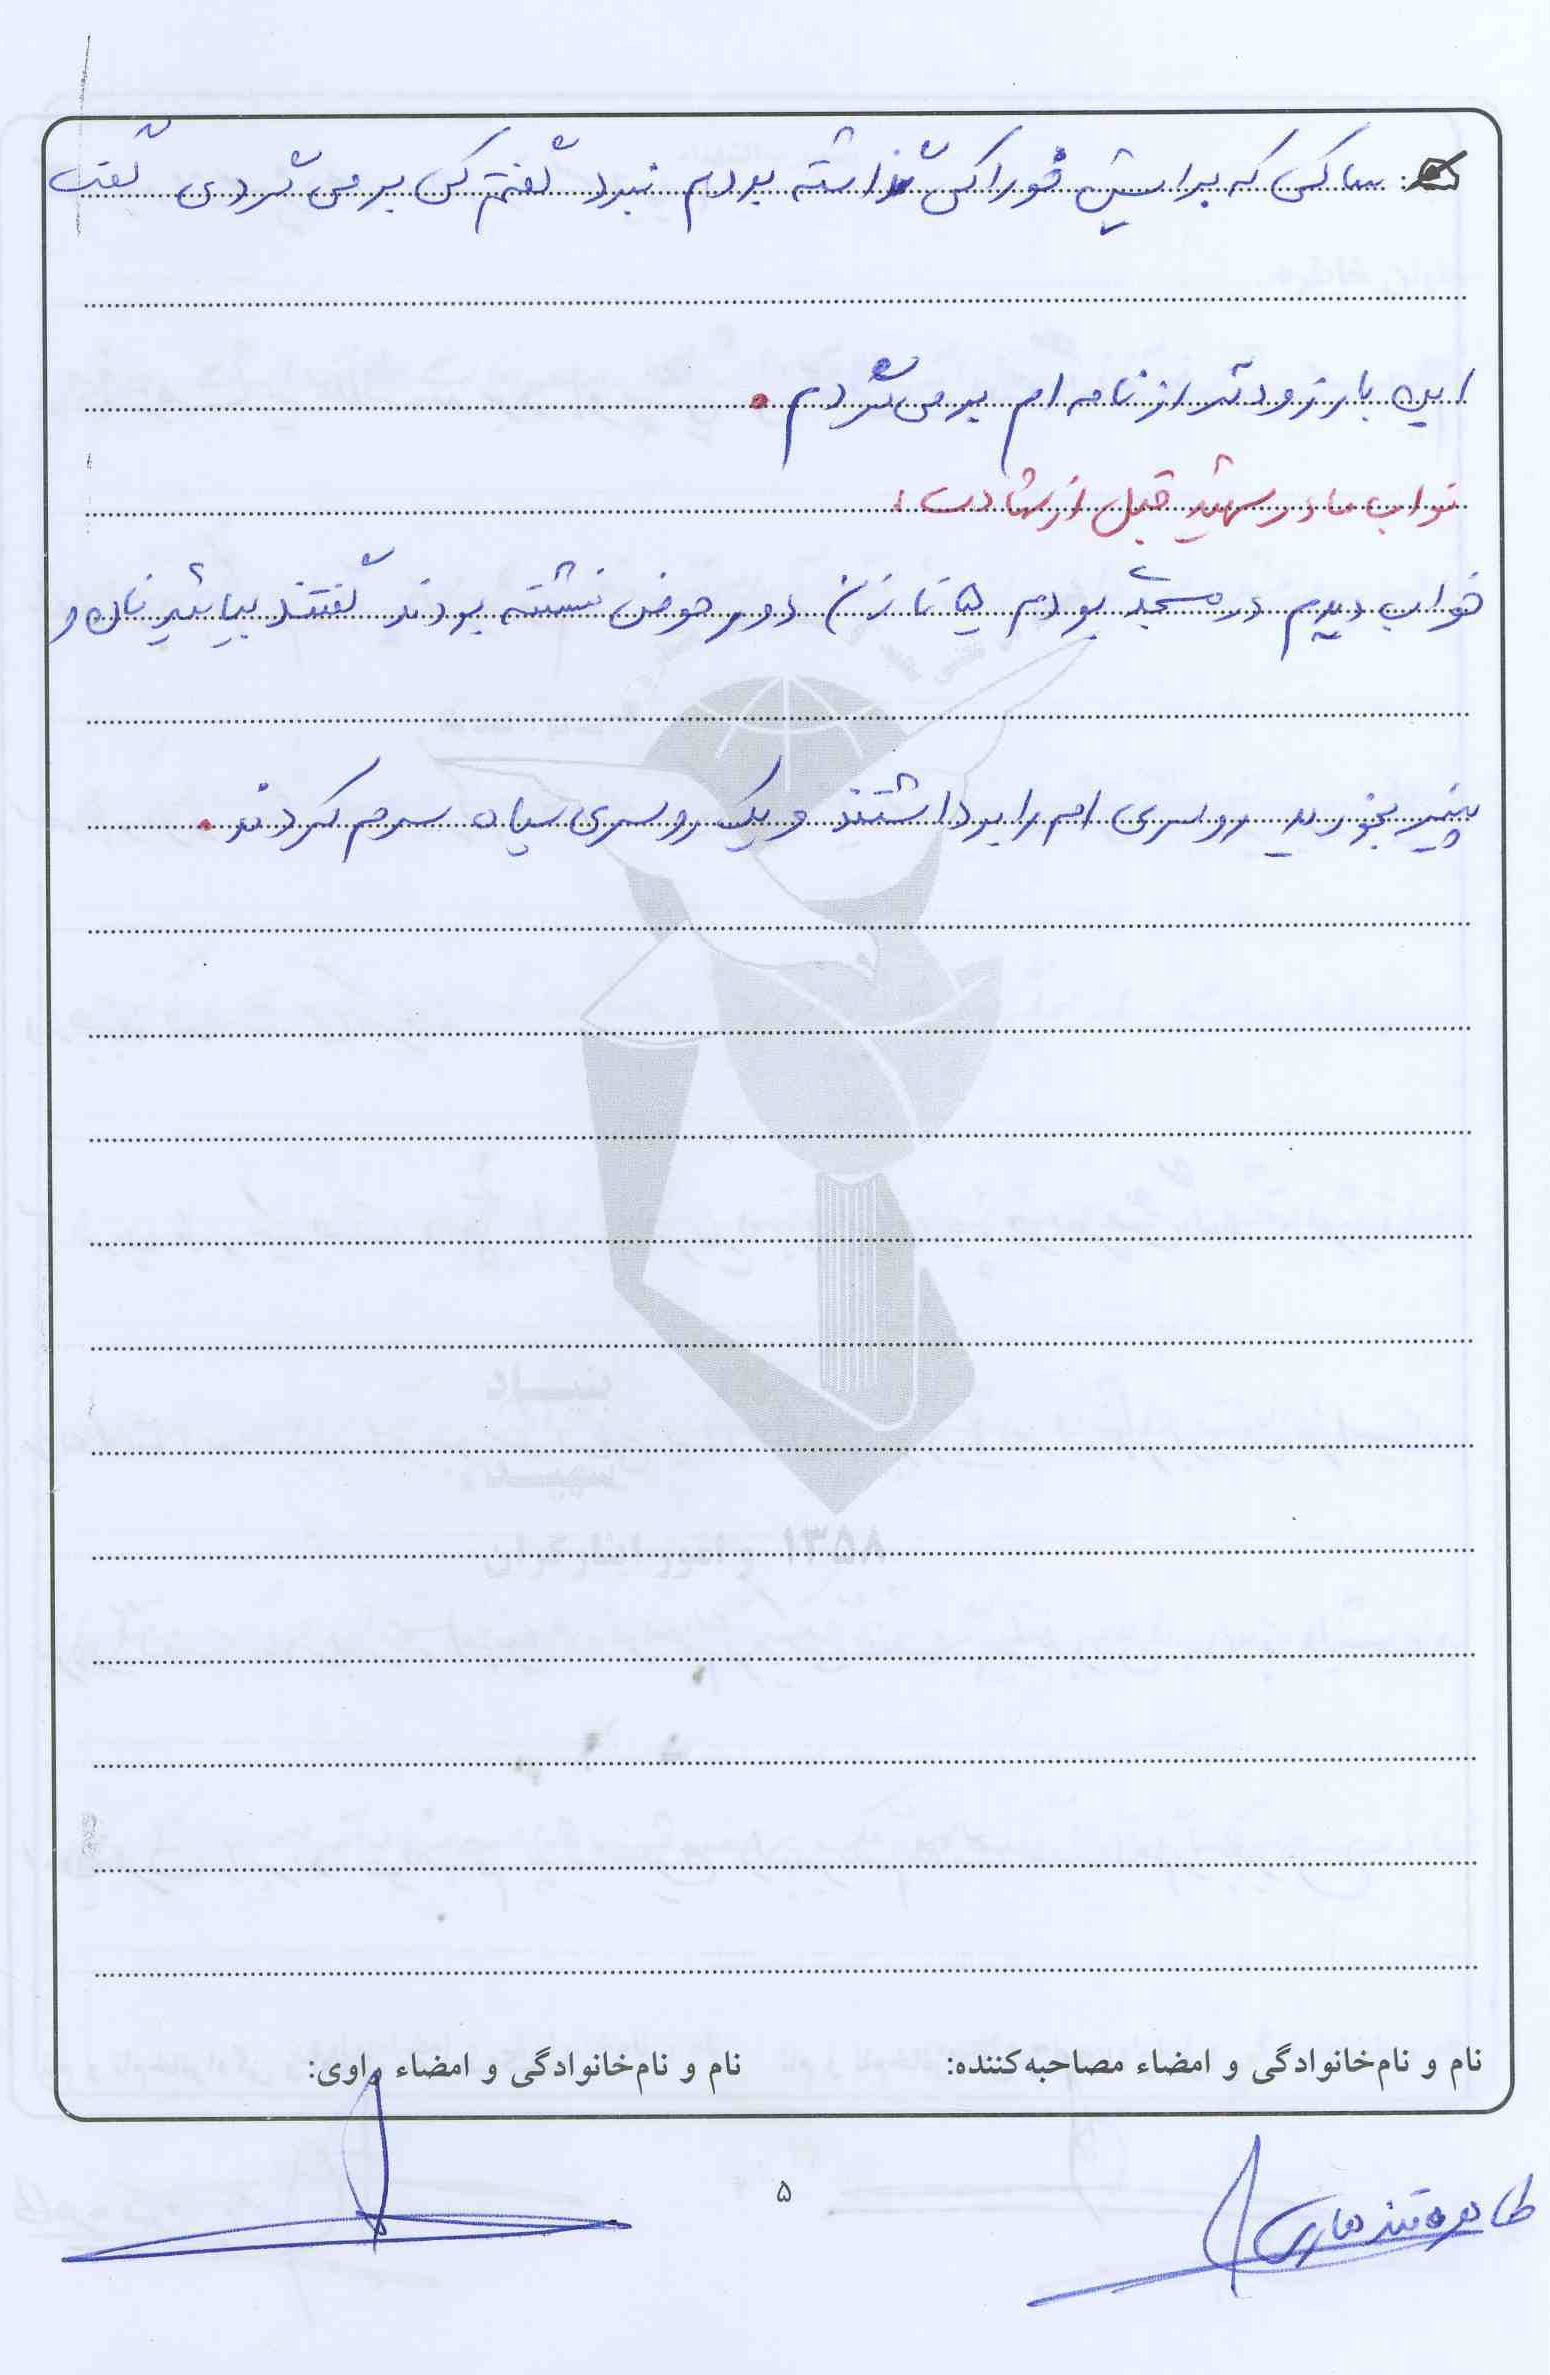 ساکی که برایش خوراکی گذاشته بودم نبرد گفتم کی بر می گردی گفت
این بار زودتر از نامه ام بر می گردم.
خواب مادر شهید قبل از شهادت:
خواب دیدم در مسجد بودم ۵ تا زن دور حوض نشسته بودند گفتند بیائید نان و
پنیر بخورید روسری ام را برداشتند و یک روسری سیاه سرم کردند.
۱۳۵۸
نام و نام‌خانوادگی و امضاء مصاحبه‌کننده:
نام و نام‌خانوادگی و امضاء راوی:
طاهره قندهاری
۵